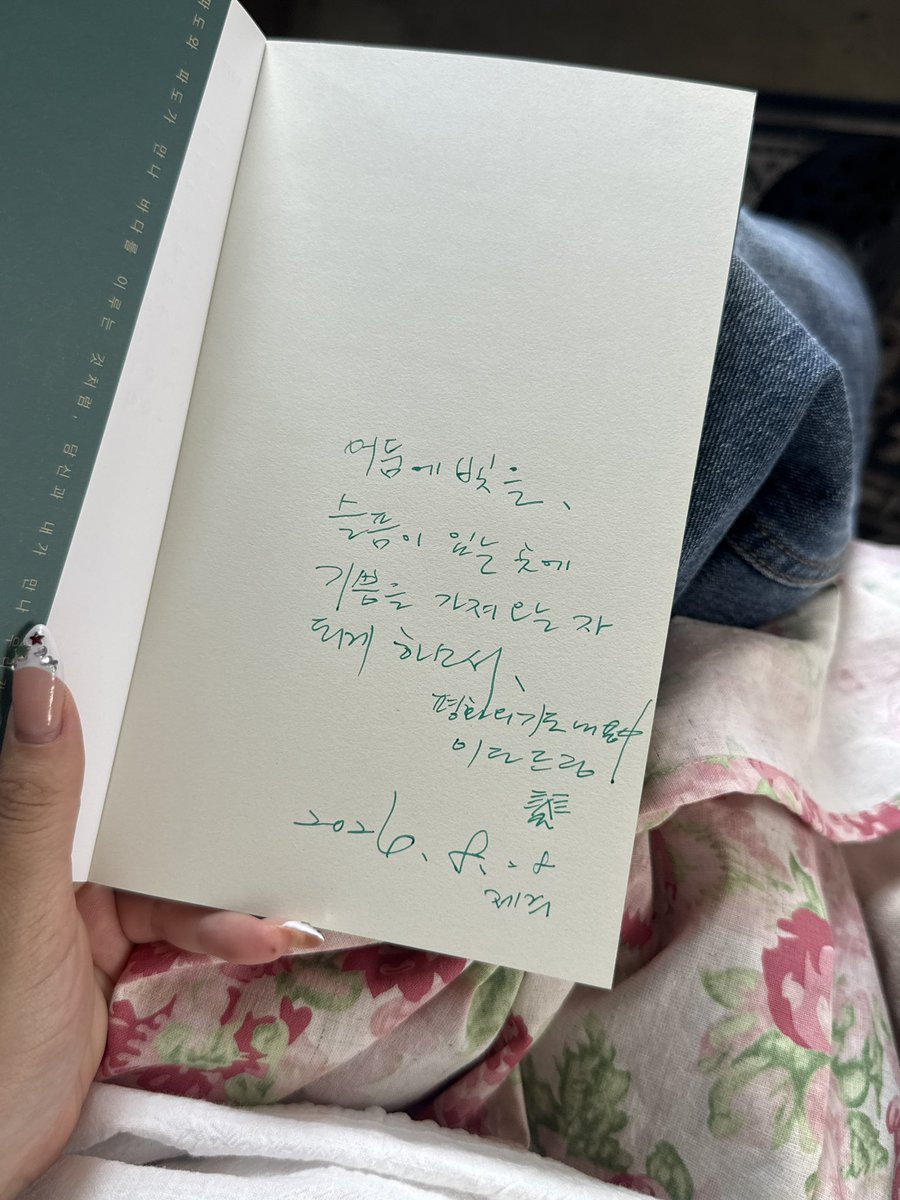 파도와 파도가 만나 바다를 이루는 것처럼, 당신과 내가 만나
어둠에 빛을,
슬픔이 있는 곳에
기쁨을 가져오는 자
되게 하소서,
평화의 기도 내용中
이다 드림
2026. 8. 8
제주